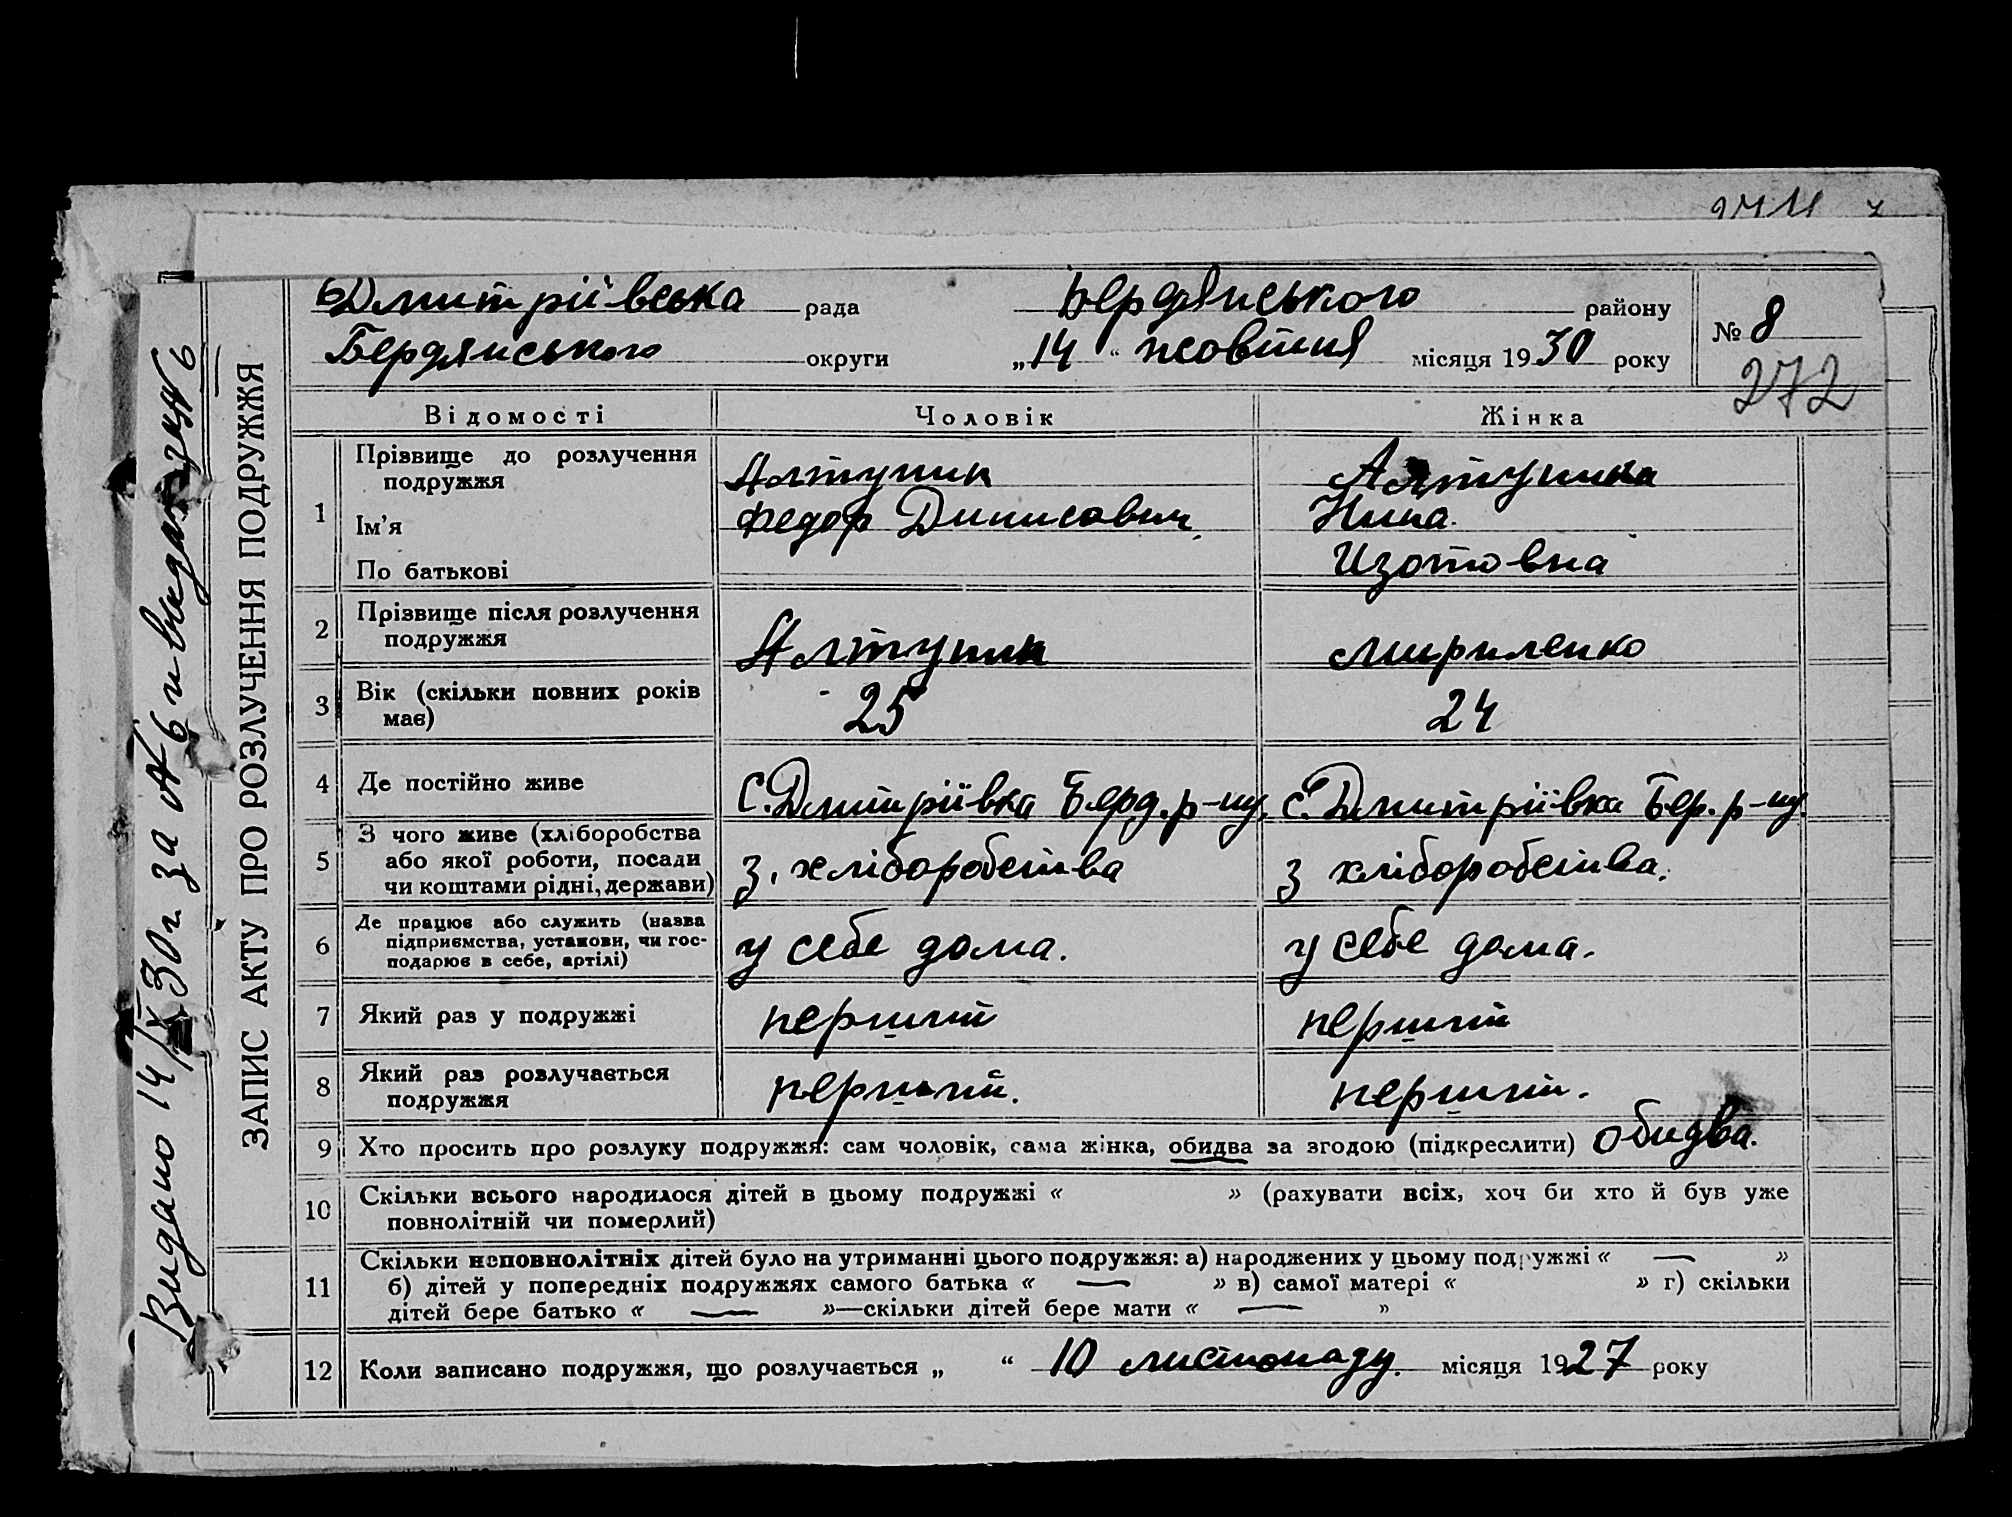 272
Дмитріївська рада Бердянського району
Бердянського округи „14“ жовтня місяця 1930 року
№ 8
Відомості Чоловік Жінка
1 Прізвище до розлучення подружжя Алтунин Алтунина
Ім'я Федор Динисович Нина
По батькові Изотовна
2 Прізвище після розлучення подружжя Алтунин Мириленко
3 Вік (скільки повних років має) 25 24
4 Де постійно живе С. Дмитріївка Берд. р-ну. С. Дмитріївка Бер. р-ну.
5 З чого живе (хліборобства або якої роботи, посади чи коштами рідні, держави) з. хліборобства з хліборобства.
6 Де працює або служить (назва підприємства, установи, чи господарює в себе, артілі) у себе дома. у себе дома.
7 Який раз у подружжі перший перший
8 Який раз розлучається подружжя перший. перший.
9 Хто просить про розлуку подружжя: сам чоловік, сама жінка, обидва за згодою (підкреслити) обидва.
10 Скільки всього народилося дітей в цьому подружжі « » (рахувати всіх, хоч би хто й був уже
повнолітній чи померлий)
11 Скільки неповнолітніх дітей було на утриманні цього подружжя: а) народжених у цьому подружжі « — »
б) дітей у попередніх подружжях самого батька « — » в) самої матері « » г) скільки
дітей бере батько « — »—скільки дітей бере мати « — »
12 Коли записано подружжя, що розлучається „ “ 10 листопаду. місяця 1927 року
ЗАПИС АКТУ ПРО РОЗЛУЧЕННЯ ПОДРУЖЖЯ
Видано 14/X 30 г. за № 6 и